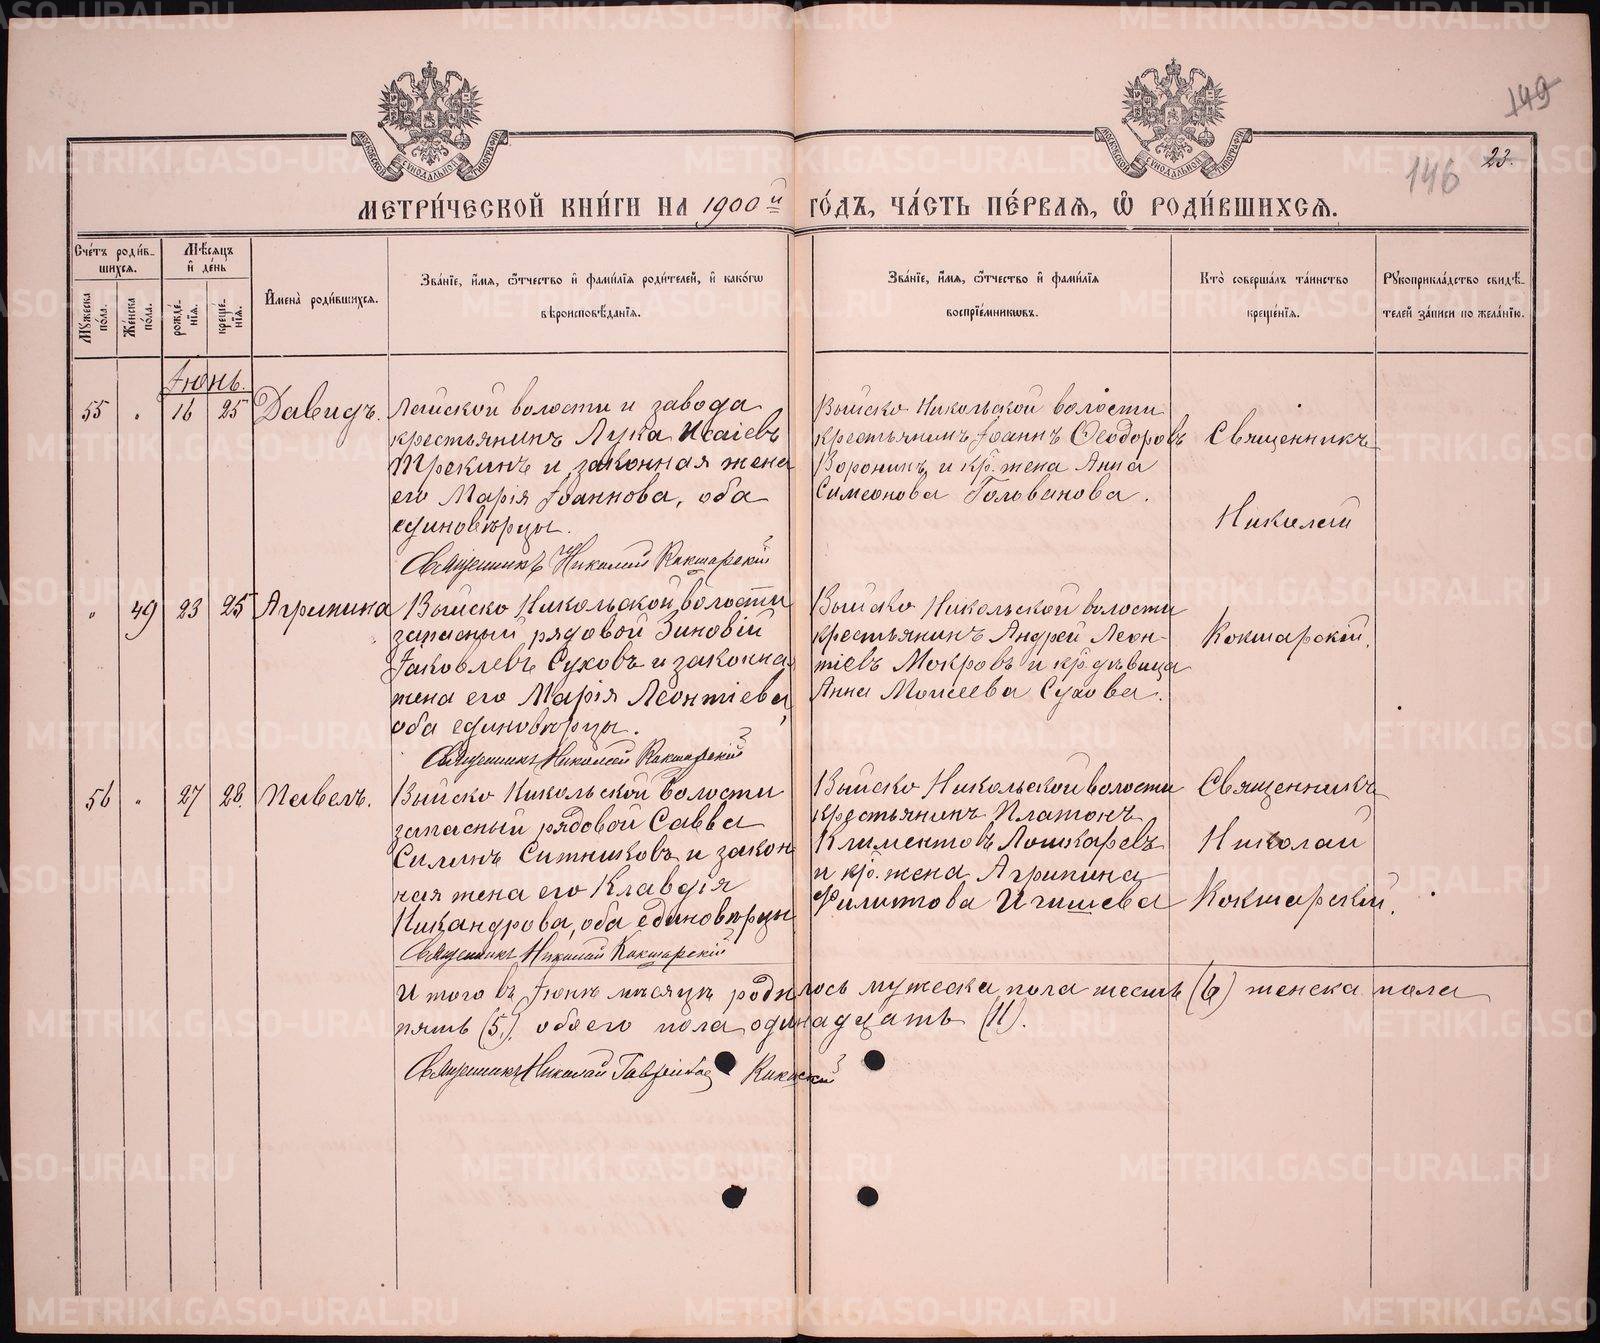 149
23.
146
МЕТРИ́ЧЕСКОЙ КНИ́ГИ НА 1900й ГО́ДЪ, ЧА́СТЬ ПЕ́РВАѦ, Ѽ РОДИ́ВШИХСѦ.
Сче́тъ роди́в-
шихсѧ.
Мꙋжеска пола.
Же́нска по́ла.
Мѣ́сѧцъ
и҆ де́нь
рожде́нїѧ.
креще́нїѧ.
И҆мена̀ роди́вшихсѧ.
Зва́нїе, и҆́мѧ, ѻ҆́тчество и҆ фами́лїѧ роди́телей, и҆ како́гѡ
вѣроисповѣ́данїѧ.
Зва́нїе, и҆́мѧ, ѻ҆́тчество и҆ фами́лїѧ
воспрїе́мникѡвъ.
Кто̀ соверша́лъ та́инство
креще́нїѧ.
Рꙋкоприкла́дство свидѣ́-
телей за́писи по жела́нїю.
Іюнь.
55 " 16 25 Давидъ.
Лайской волости и завода
крестьянинъ Лука Исаіевъ
Трекинъ и законная жена
его Марія Іоаннова, оба
единовѣрцы.
Священникъ Николай Кокшарскій
Выйско Никольской волости
крестьянинъ Іоаннъ Ѳеодоровъ
Воронинъ и кр. жена Анна
Симеонова Гольванова.
Священникъ
Николай
" 49 23 25 Агрипина
Выйско Никольской волости
запасный рядовой Зиновій
Іаковлевъ Суховъ и законна
жена его Марія Леонтіева,
оба единовѣрцы.
Священникъ Николай Кокшарскій
Выйско Никольской волости
крестьянинъ Андрей Леон-
тіевъ Мокровъ и кр. дѣвица
Анна Моисеева Сухова.
Кокшарскій.
56 " 27 28. Павелъ.
Выйско Никольской волости
запасный рядовой Савва
Силинъ Ситниковъ и закон
ная жена его Клавдія
Никандрова, оба единовѣрцы
Священникъ Николай Кокшарскій
Выйско Никольской волости
крестьянинъ Платонъ
Климентовъ Лошкаревъ
и кр. жена Агрипина
Филитова Игишева
Священникъ
Николай
Кокшарскій.
Итого въ Іюнѣ мѣсяцѣ родилось мужеска пола шесть (6) женска пола
пять (5). обоего пола одинадцать (11).
Священникъ Николай Гавріилов
METRIKI.GASO-URAL.RU